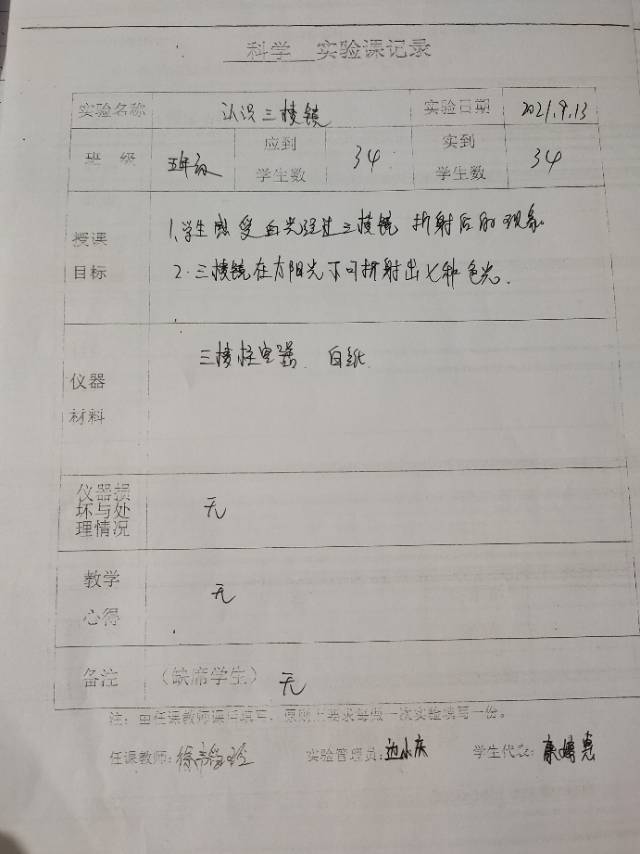 科学 实验课记录
实验名称 认识三棱镜 实验日期 2021.9.13
班 级 五年级 应到学生数 34 实到学生数 34
授课目标 1、学生感受白光经过三棱镜折射后的现象
2.三棱镜在太阳光下可折射出七种色光.
仪器材料 三棱 白纸
仪器损坏与处理情况 无
教学心得 无
备注 (缺席学生) 无
注：由任课教师课后填写，原则上要求每做一次实验填写一份。
任课教师: 徐 实验管理员: 边小庆 学生代表: 康